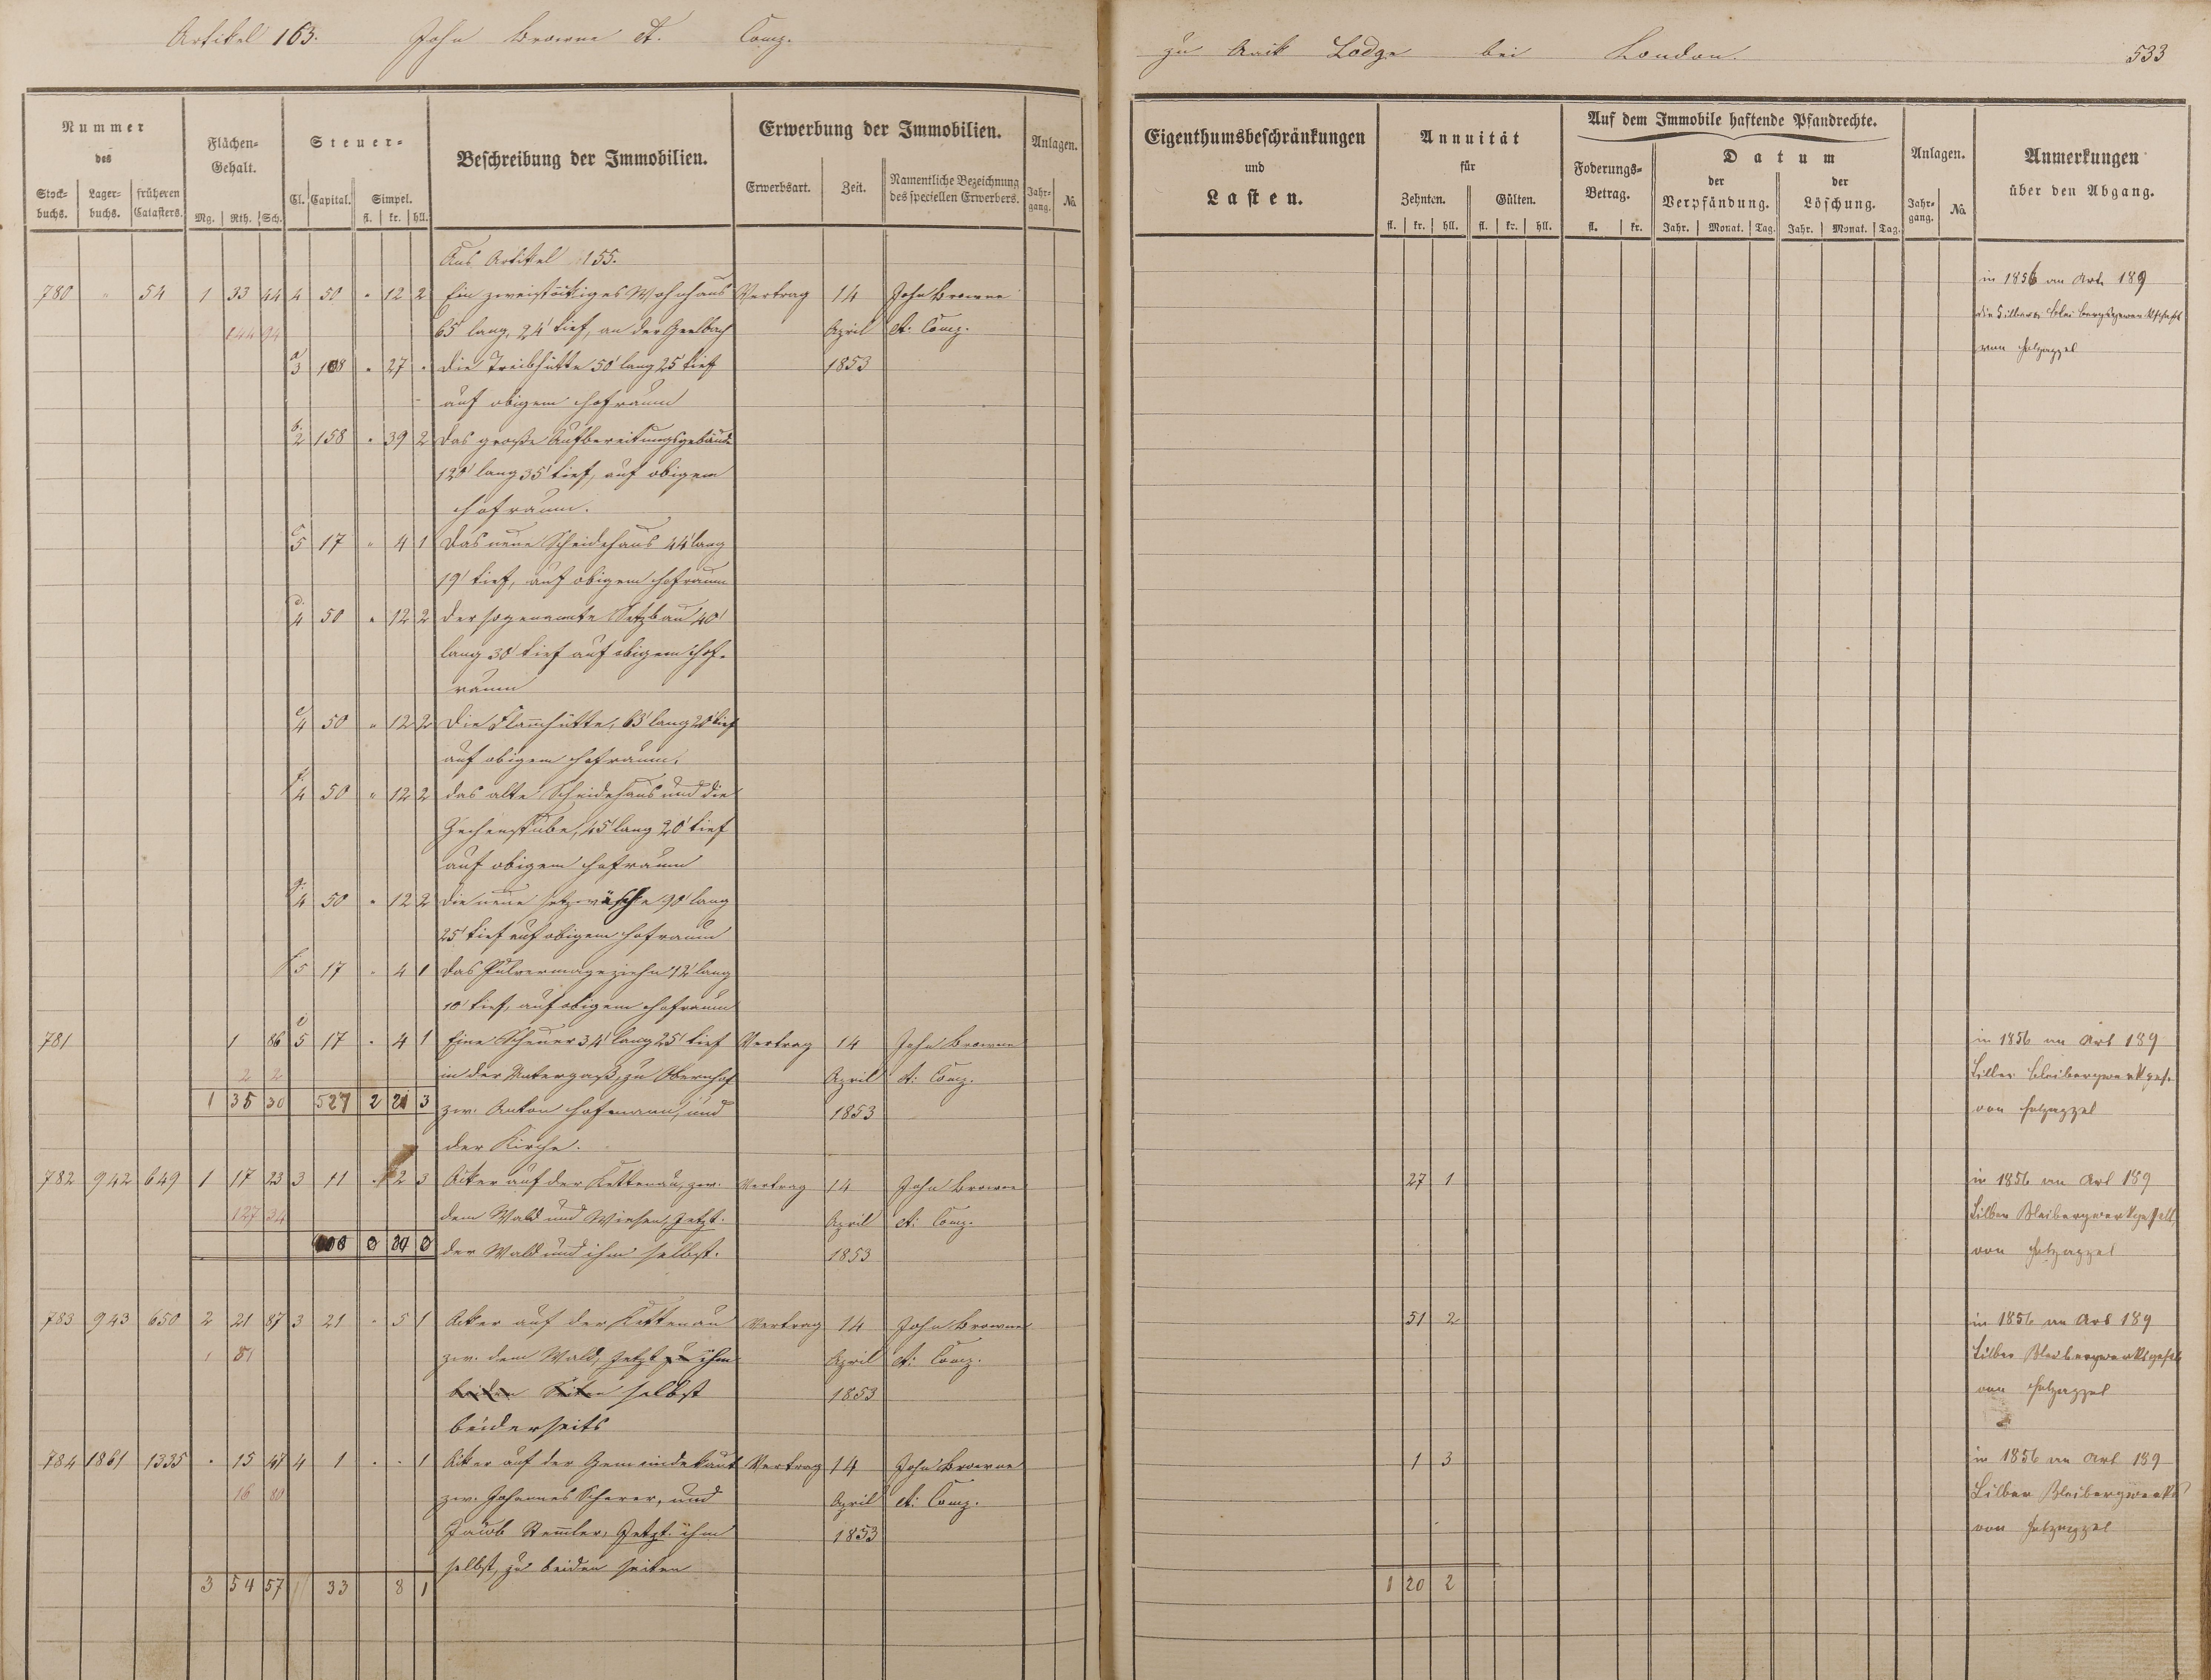 Artikel 163. John Browne et. Comp.
zu Lodge bei London. 533
Nummer
des
Stock-
buchs.
Lager-
buchs.
früheren
Catasters.
Flächen-
Gehalt.
Mg. Rth. Sch.
Steuer-
Cl. Capital. Simpel.
fl. kr. hll.
Beschreibung der Immobilien.
Erwerbung der Immobilien.
Erwerbsart. Zeit.
Namentliche Bezeichnung
des speciellen Erwerbers.
Anlagen.
Jahr-
gang.
No.
Eigenthumsbeschränkungen
und
Lasten.
Annuität
für
Zehnten. Gülten.
fl. kr. hll. fl. kr. hll.
Auf dem Immobile haftende Pfandrechte.
Foderungs-
Betrag.
fl. kr.
Datum
der
Verpfändung.
der
Löschung.
Jahr. Monat. Tag. Jahr. Monat. Tag.
Anlagen.
Jahr-
gang.
No.
Anmerkungen
über den Abgang.
Aus Artikel 155.
780 " 54 1 33 44 4 50 " 12 2 Ein zweistöckiges Wohnhaus Vertrag 14 John Browne in 1856 an Art. 189
144 94 65' lang, 24' tief, an der Gerlbach April et. Comp. die Silber & Bleibergwerk
a 3 108 " 27 " Die Treibhütte 50' lang 25' tief 1853 von Holzappel
auf obigem Hofraum
b. 2 158 " 39 2 Das große Aufbereitungsgebäude
120' lang 35' tief, auf obigem
Hofraum.
c 5 17 " 4 1 Das neue Scheidehaus 44' lang
19' tief, auf obigem Hofraum
d. 4 50 " 12 2 Der sogenannte Setzbau 40'
lang 30' tief auf obigem Hof-
raum
e 4 50 " 12 2 Die Flam̄hütte, 65' lang 20' tief
auf obigem Hofraum.
f 4 50 " 12 2 das alte Scheidehaus und die
Zechenstube, 45' lang 20' tief
auf obigem Hofraum
g. 4 50 " 12 2 Die neue Setzwäsche 90' lang
25' tief auf obigem Hofraum
5 17 " 4 1 Das Pulvermagaziehn 12' lang
10' tief, auf obigem Hofraum
781 1 86 5 17 " 4 1 Eine Scheuer 34' lang 25' tief Vertrag 14 John Browne in 1856 an Art 189
2 2 in der Untergaß, zu Obernhof April et. Comp. Silber Bleibergwerkges.
1 35 30 527 2 21 3 zw. Anton Hofmann, und 1853 von Holzappel
der Kirche.
782 942 649 1 17 23 3 11 " 2 3 Acker auf der Kettenau, zw. Vertrag 14 John Browne 27 1 in 1856 an Art 189
127 34 dem Wald und Wiesen, Jetzt. April et. Comp. Silber Bleibergwerkgesell
der Wald und ihm selbst. 1853 von Holzappel
783 943 650 2 21 87 3 21 " 5 1 Acker auf der Kettenau Vertrag 14 John Browne 51 2 in 1856 an Art 189
1 81 zw. dem Wald, Jetzt zu ihm April et. Comp. Silber Bleibergwerksgesell
beiden Seiten selbst 1853 von Holzappel
beiderseits
784 1861 1335 " 15 47 4 1 " " 1 Acker auf der Gemeindekaut Vertrag 14 John Browne 1 3 in 1856 an Art 189
16 80 zw. Johannes Scherer, und April et. Comp. Silber Bleibergwerks
Jacob Stemler, Jetzt ihm 1853 von Holzappel
selbst, zu beiden Seiten
3 54 57 33 8 1 1 20 2